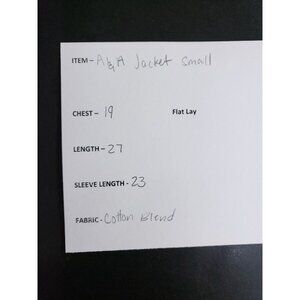 ITEM – A&A Jacket small
CHEST – 19 Flat Lay
LENGTH – 27
SLEEVE LENGTH - 23
FABRIC - Cotton Blend